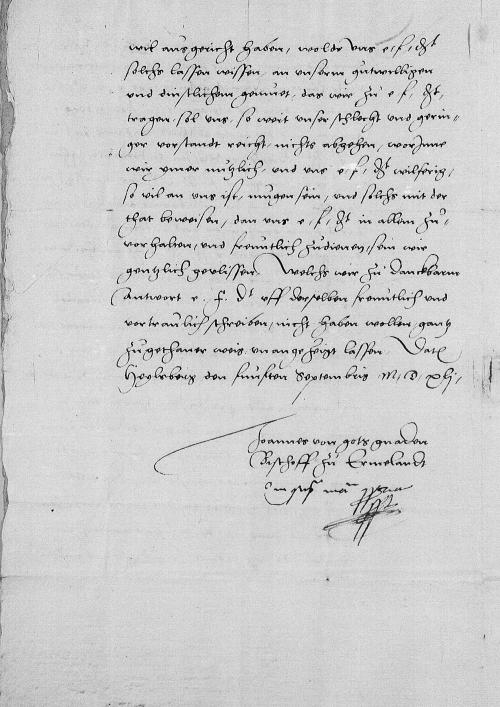 wil ausgericht haben, wolde uns e. f. Dt.
solchs lassen wissen, an unserm gutwilligen
und dinstlichem gemuet, das wir zu e. f. Dt.
tragen sol uns, so weit unser schlecht und gerin-
ger vorstandt reicht, nichts abgehen, worInne
wir ymer nutzlich und uns e. f. Dt. wilferig,
so vil an uns ist, mugen sein, und solchs mit der
that beweisen, dan uns e. f. Dt. in allem zu-
vorhalten, und freuntlich zudienen, sein wir
gentzlich gevlissen. Welchs wir zu danckbarm
Antwort e. f. Dt. uff derselben freuntlich und
vertraulich schreiben, nicht haben wollen gantz
zugethaner weis unangezeigt lassen. Dat.
Heylsberg den funften Septembris M. D. xlj.
Joannes von gots gnaden
Bischoff zu Ermelandt